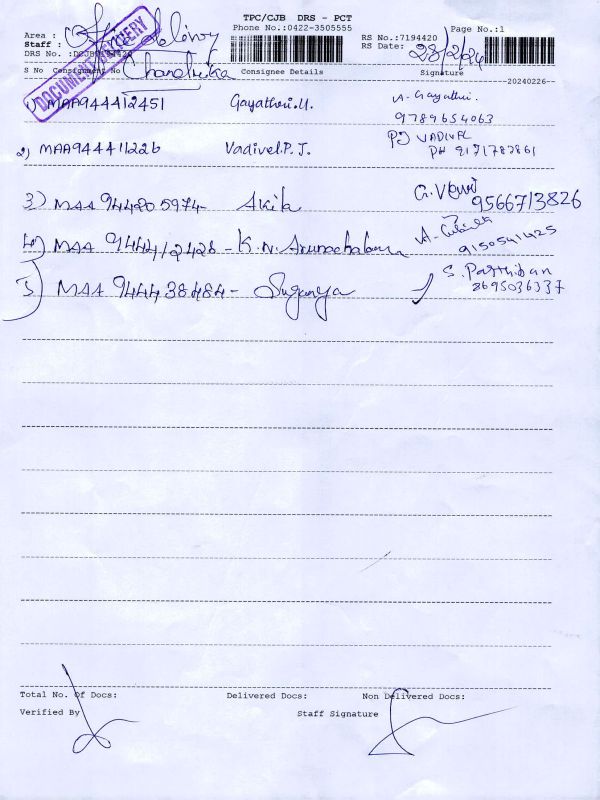 TPC/CJB DRS - PCT
Phone No.:0422-3505555
Page No.:1
Area :
RS No.:7194420
Staff :
RS Date: 28/2/24
DRS No. :
DOCUMENT DELIVERY
S No Consignment No Chandrika Consignee Details Signature
20240226
1) MAA944412451 Gayathri.U. A. Gayathri.
9789654063
2) MAA944411226 Vadivel.P.J. PJ VADIVEL
PH 9171783861
3) MAA 944205974- Akila G.V
9566713826
4) MAA 944412428 - K.N. Arunachalam A.
9150541425
5) MAA 944438484- Suganya S. Parthiban
8695036337
Total No. Of Docs: Delivered Docs: Non Delivered Docs:
Verified By Staff Signature